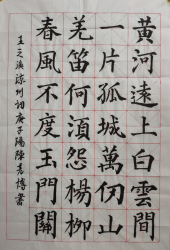 黃河遠上白雲間
一片孤城萬仞山
羌笛何須怨楊柳
春風不度玉門關
王之渙涼州詞庚子陽陳嘉博書